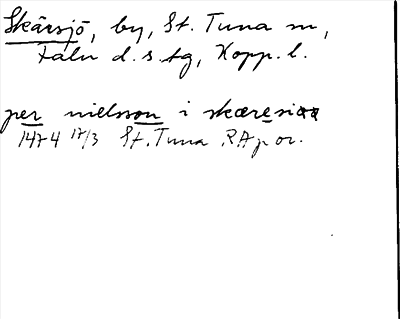 Skärsjö, by, St. Tuna sn,
Falu d. s. tg, Kopp. l.
per nielsson i skæresiææ
1474 17/3 St. Tuna RAp or.